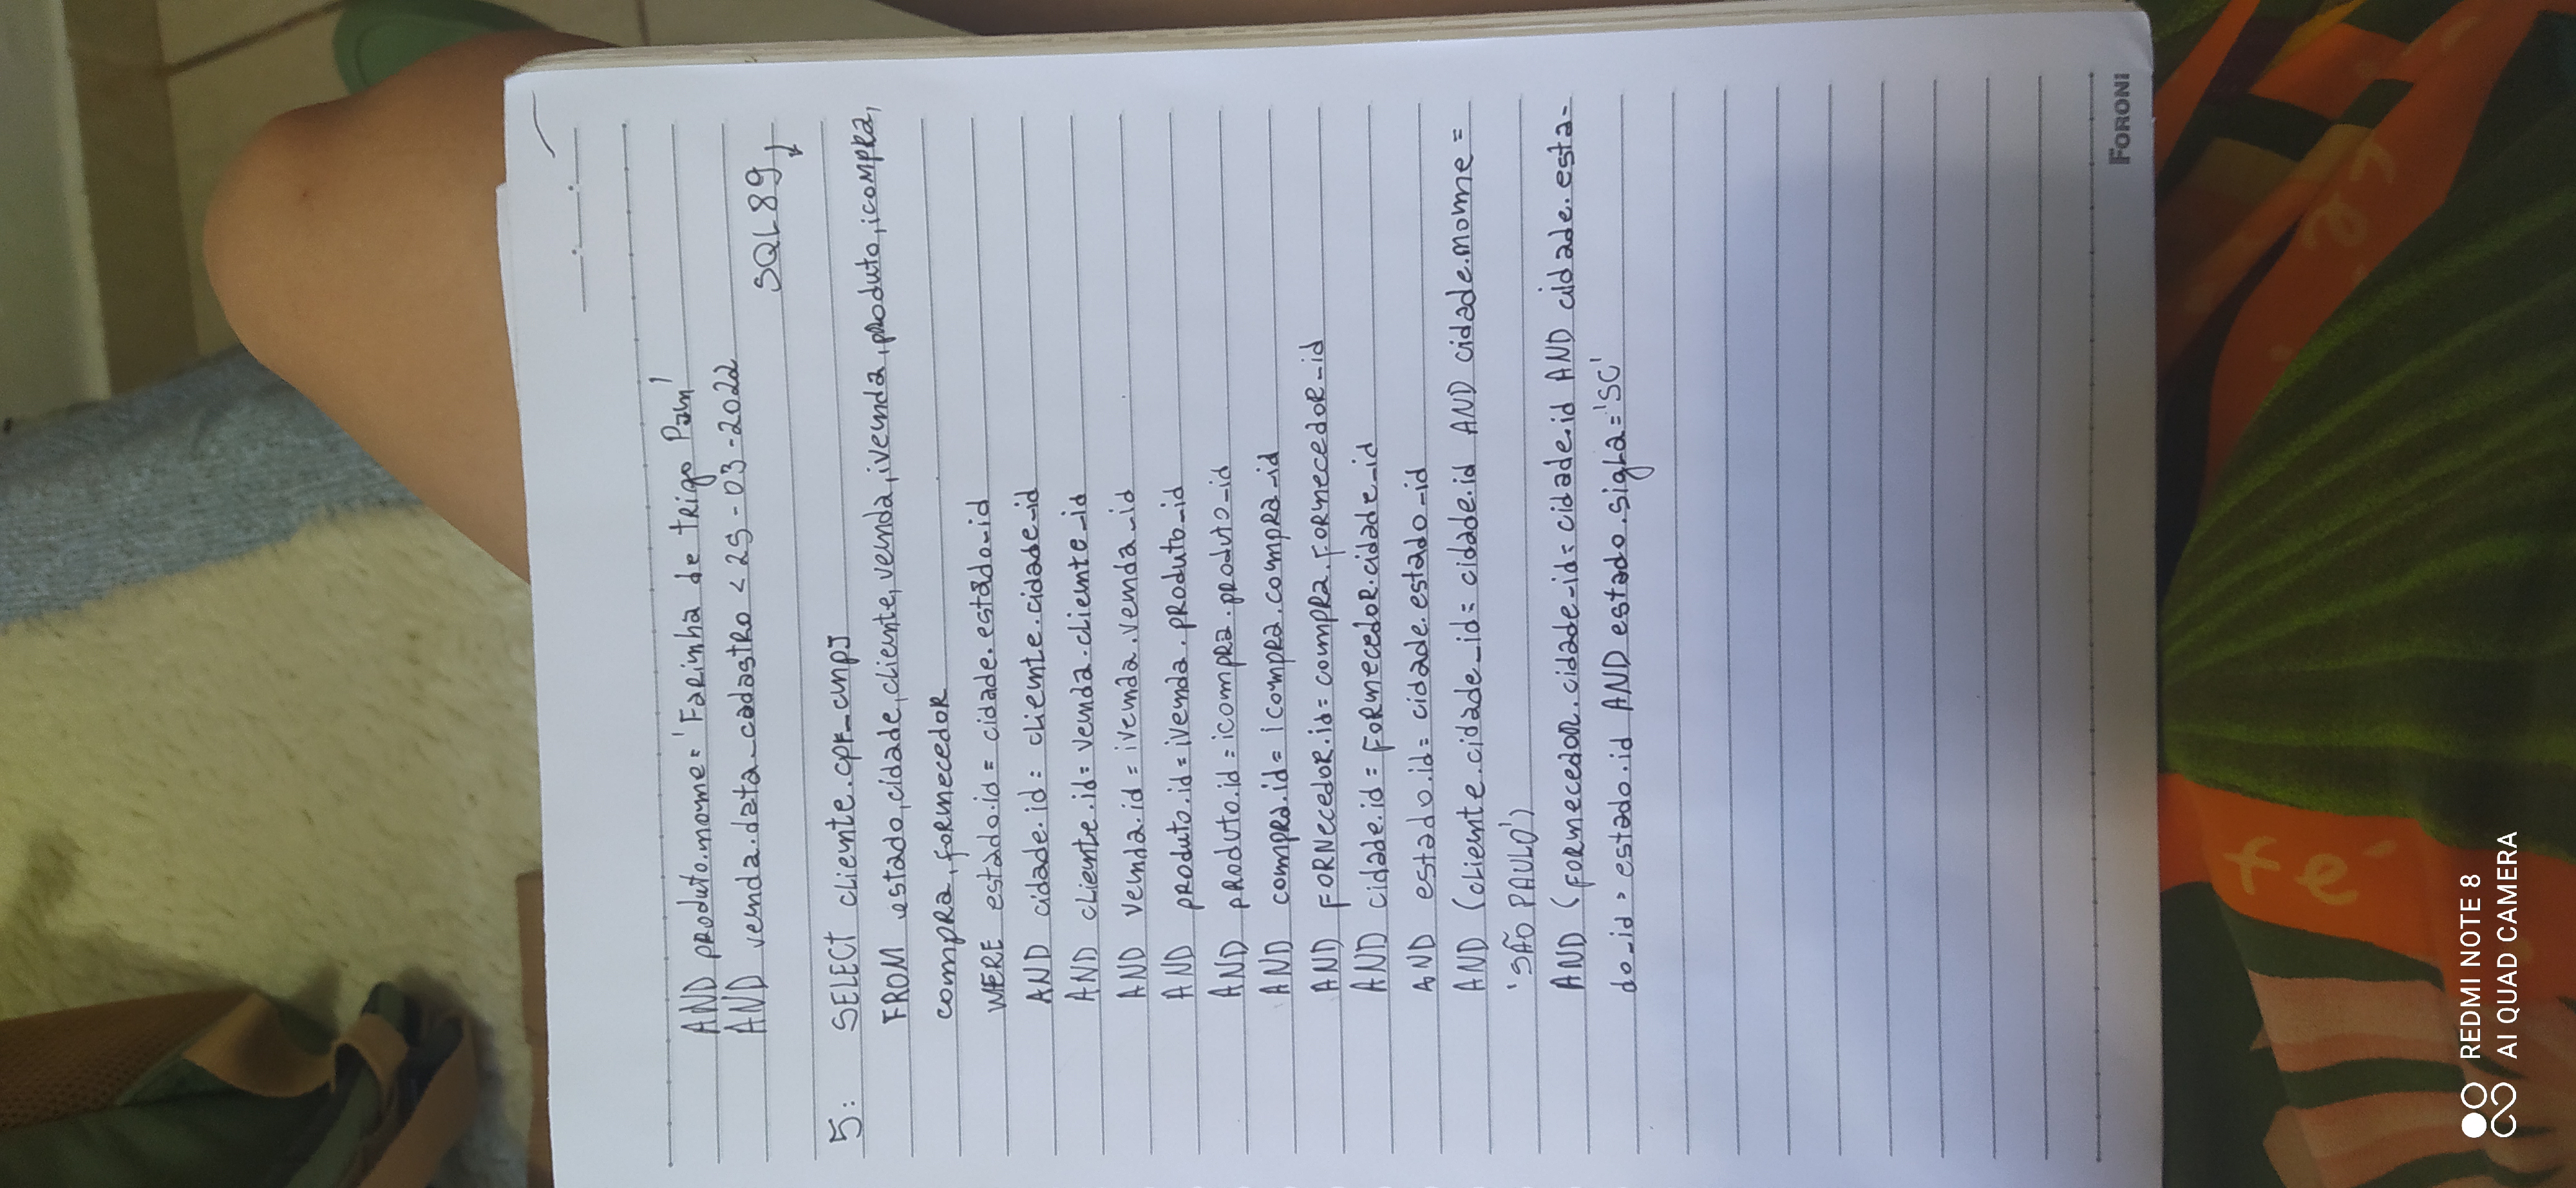 AND produto.nome= 'Farinha de trigo Pam'
AND venda.data_cadastro < 25-03-2022
SQL89
5: SELECT cliente.cpf_cnpj
FROM estado,cidade,cliente,venda,ivenda,produto,icompra,
compra,fornecedor
WERE estado.id = cidade.estado_id
AND cidade.id = cliente.cidade_id
AND cliente.id = venda.cliente_id
AND venda.id = ivenda.venda_id
AND produto.id = ivenda.produto_id
AND produto.id = icompra.produto_id
AND compra.id = icompra.compra_id
AND FORNecedor.id = compra.fornecedor_id
AND cidade.id = fornecedor.cidade_id
AND estado.id = cidade.estado_id
AND (cliente.cidade_id = cidade.id AND cidade.nome =
'SÃO PAULO')
AND (fornecedor.cidade_id = cidade.id AND cidade.esta-
do_id = estado.id AND estado.sigla = 'SC'
FORONI
fé
fé
REDMI NOTE 8
AI QUAD CAMERA